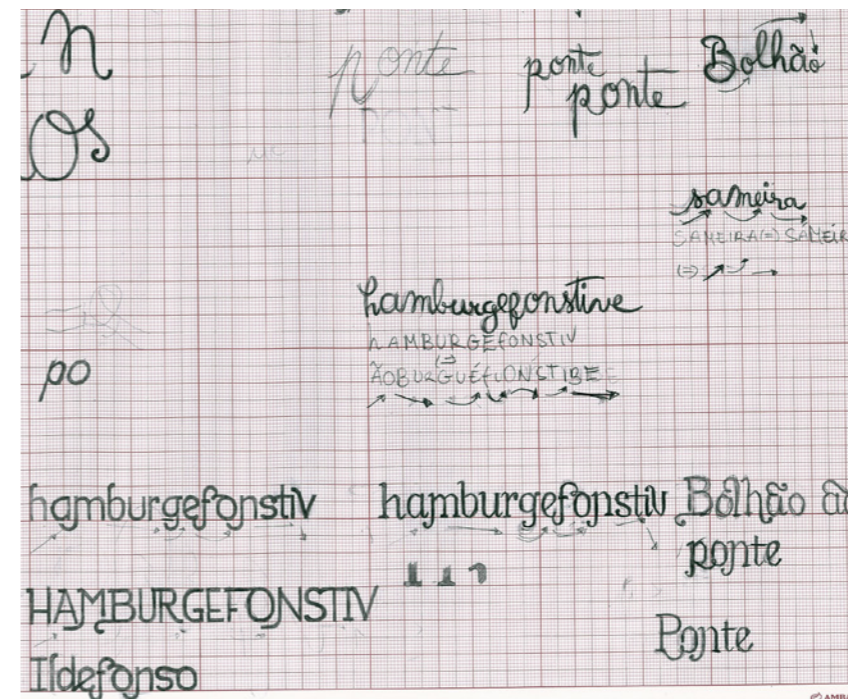 n
ponte
ponte
ponte
Bolhão
Os
FONT
sameira
SAMEIRA(=) SAMEIR
(=)
hamburgefonstive
hAMBURGEFONSTIV
(=)
po
hamburgefonstiv
hamburgefonstiv
Bolhão
ponte
HAMBURGEFONSTIV
Ponte
Ildefonso